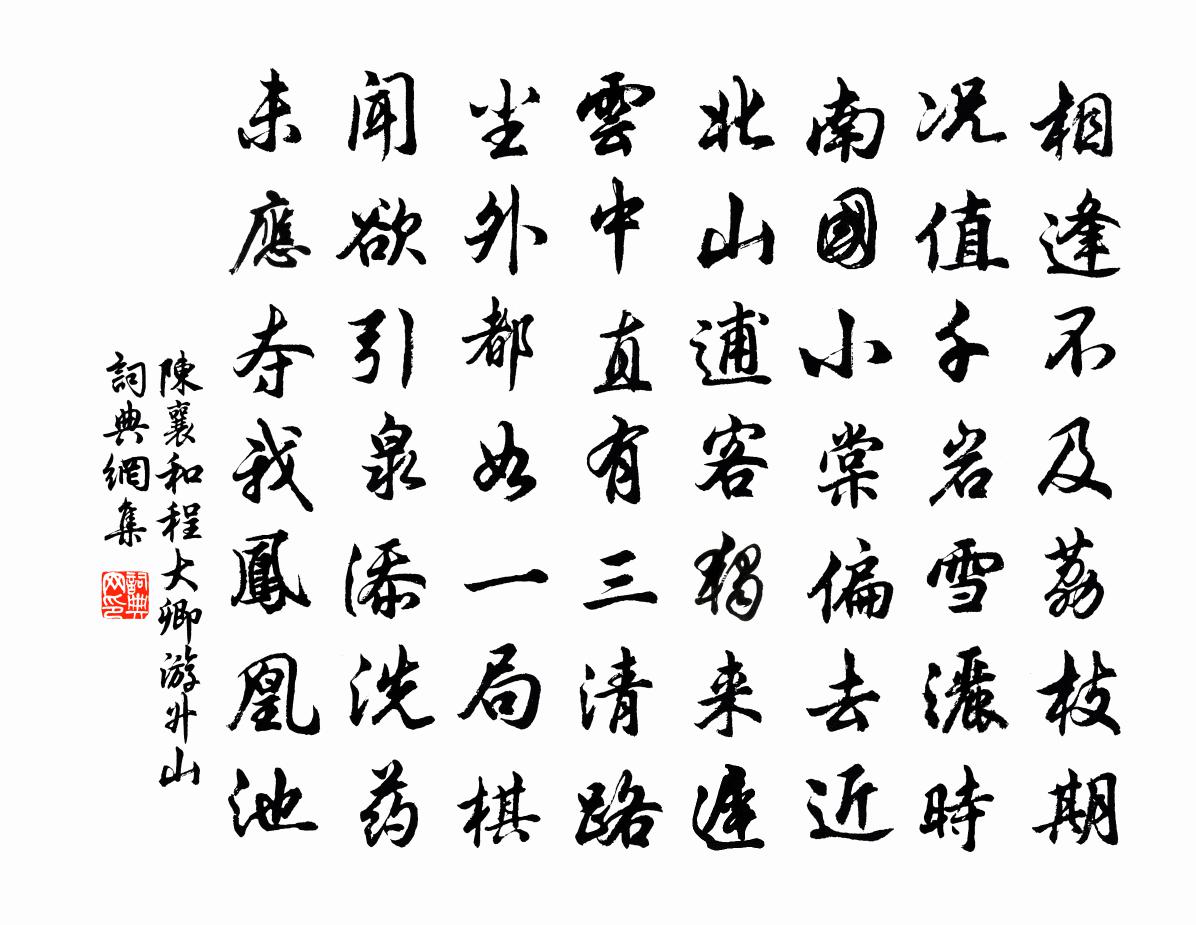 相逢不及荔枝期
况值千岩雪灑時
南國小棠偏去近
北山逋客獨来遲
雲中直有三清路
尘外都如一局棋
聞欲引泉添洗药
未應夺我鳳凰池
陳襄和程大卿游升山
詞典網集
詞典网印